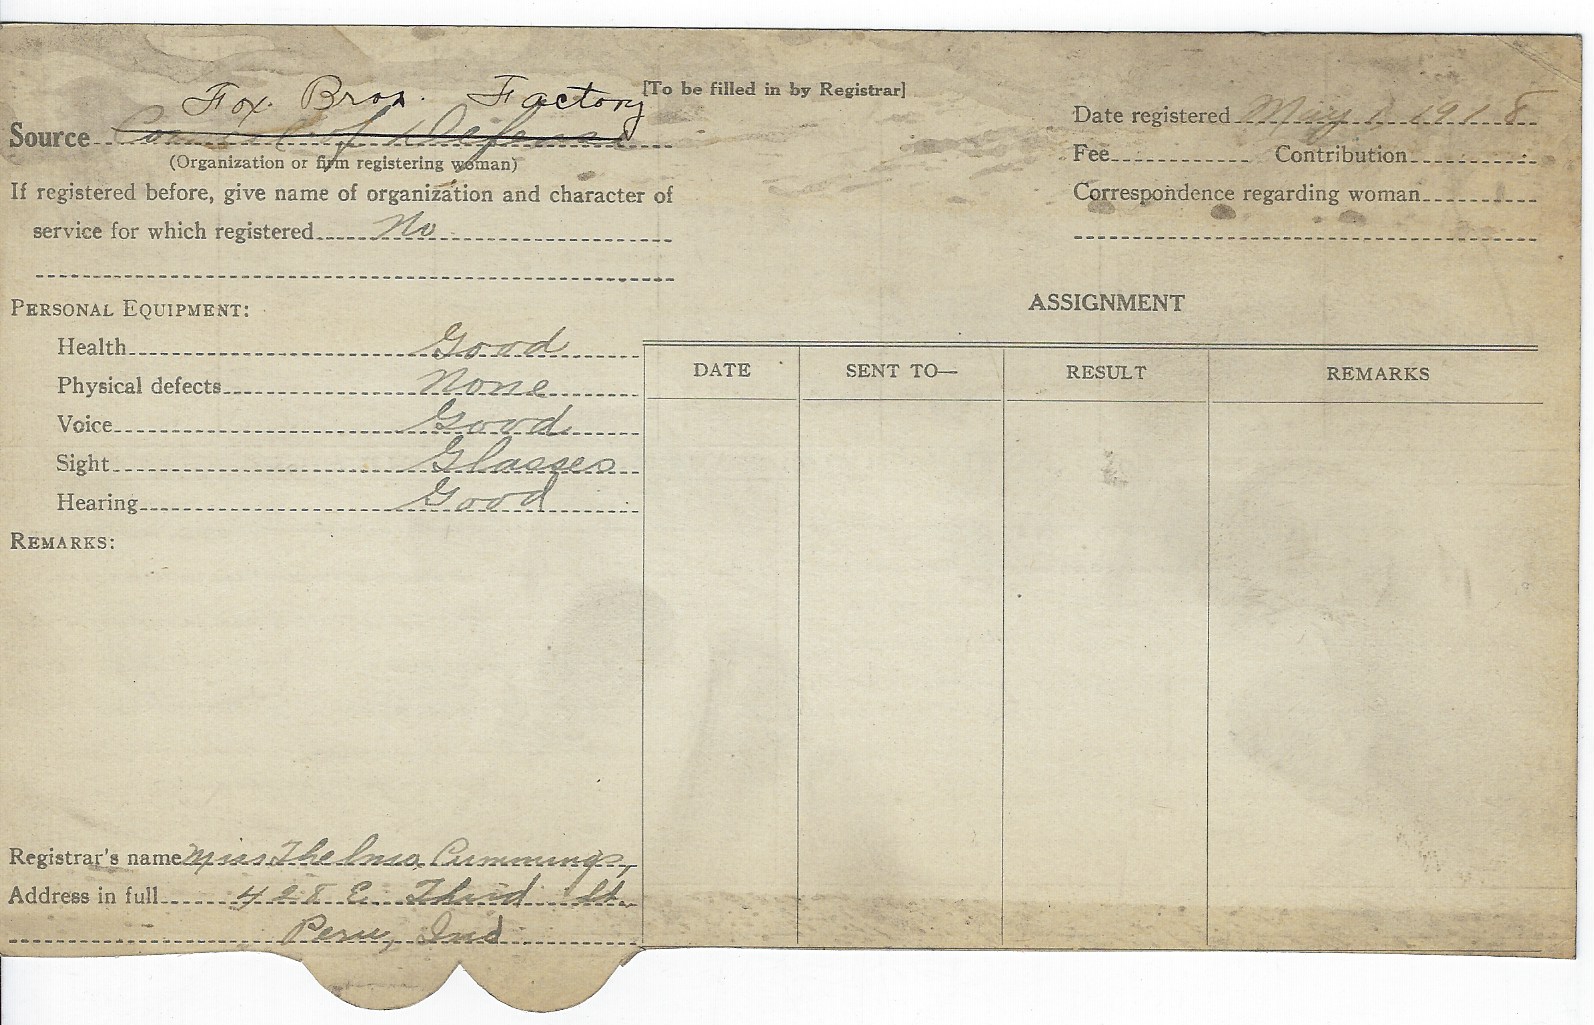 [To be filled in by Registrar]
Fox Bros. Factory
Source Council of Defense
(Organization or firm registering woman)
If registered before, give name of organization and character of
service for which registered No
Date registered May 1, 1918
Fee Contribution
Correspondence regarding woman
PERSONAL EQUIPMENT:
Health Good
Physical defects None
Voice Good
Sight Glasses
Hearing Good
REMARKS:
ASSIGNMENT
DATE SENT TO— RESULT REMARKS
Registrar's name Miss Thelma Cummings,
Address in full 428 E. Third St.
Peru, Ind